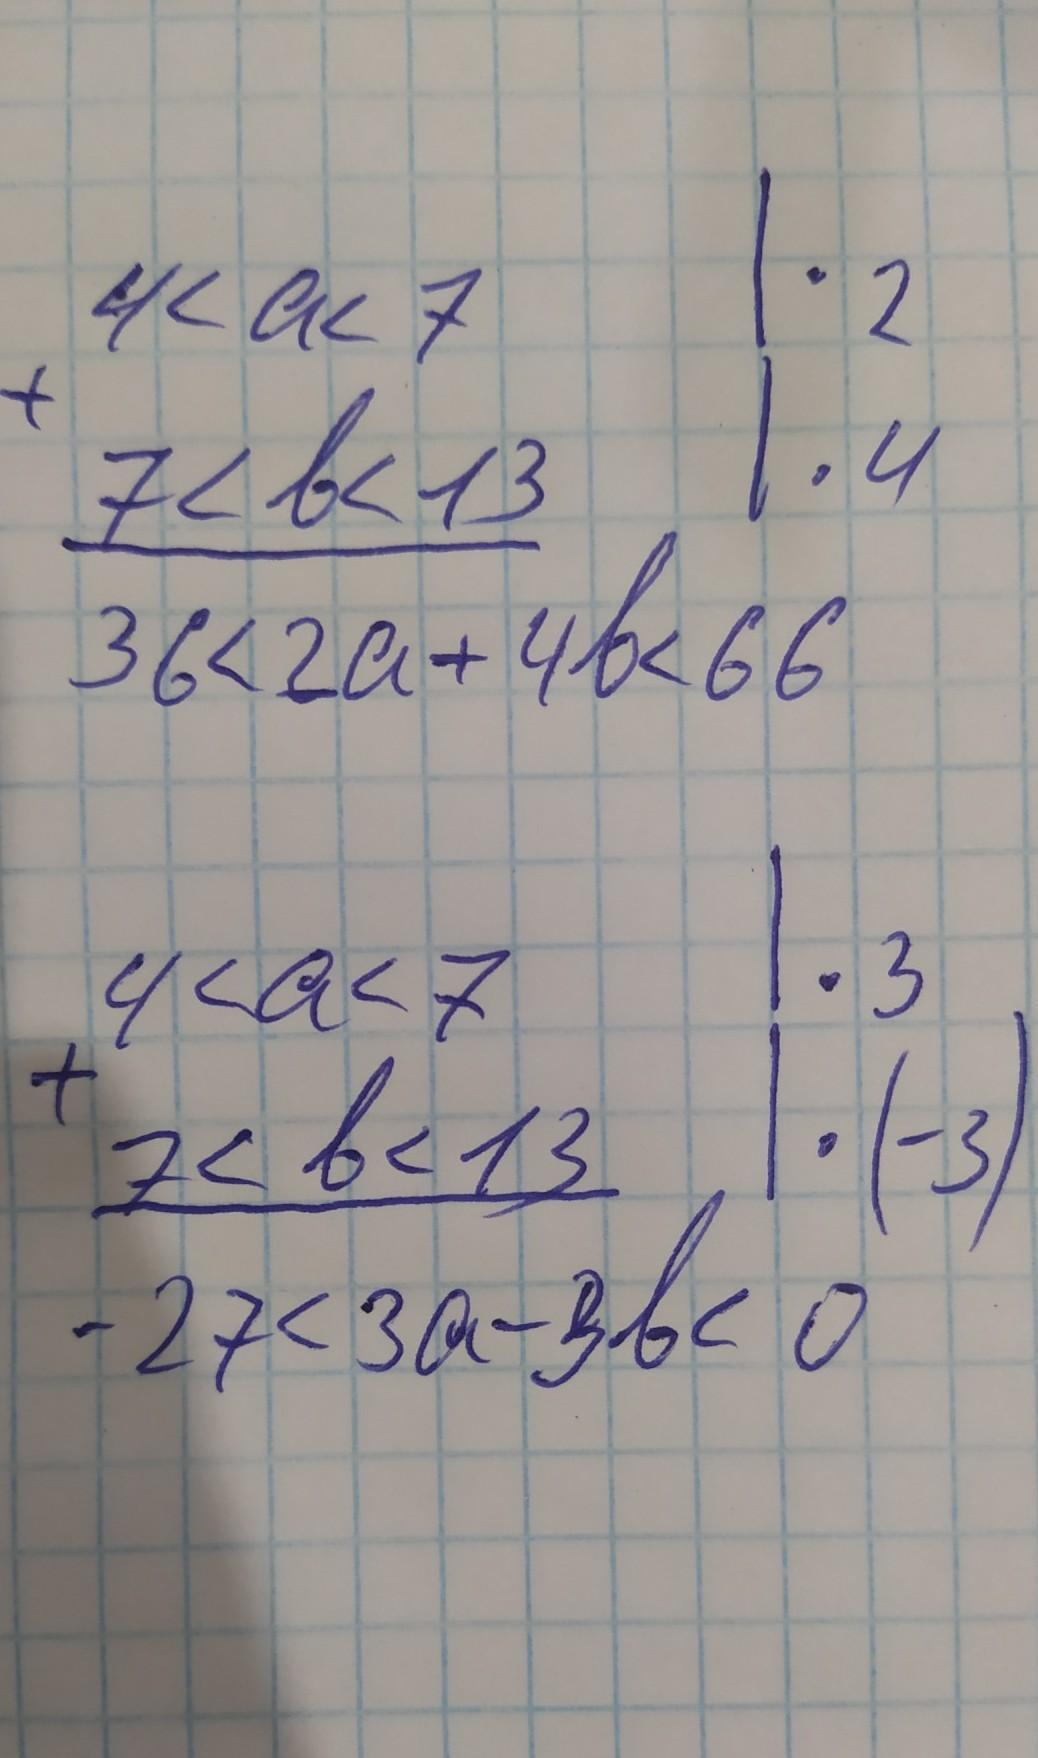 4 < a < 7 | · 2
+
7 < b < 13 | · 4
36 < 2a + 4b < 66
4 < a < 7 | · 3
+
7 < b < 13 | · (-3)
-27 < 3a - 3b < 0